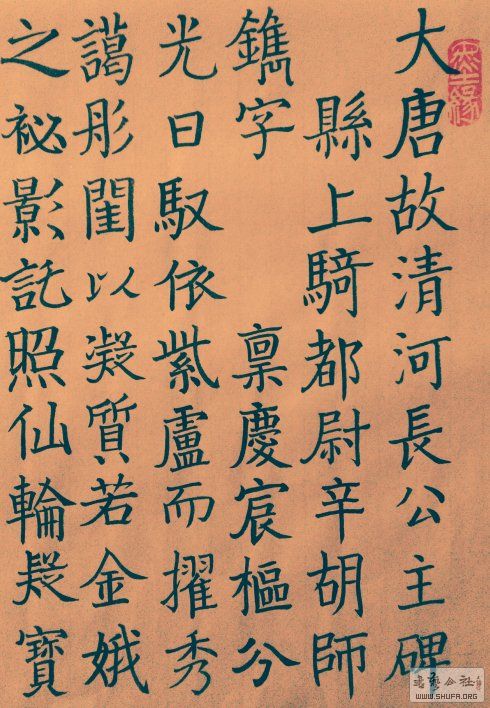 大唐故清河長公主碑
縣上騎都尉辛胡師
鐫字 稟慶宸樞分
光日馭依紫盧而擢秀
謁彤闈以凝質若金娥
之祕影託照仙輪疑寶
WWW.SHUFA.ORG